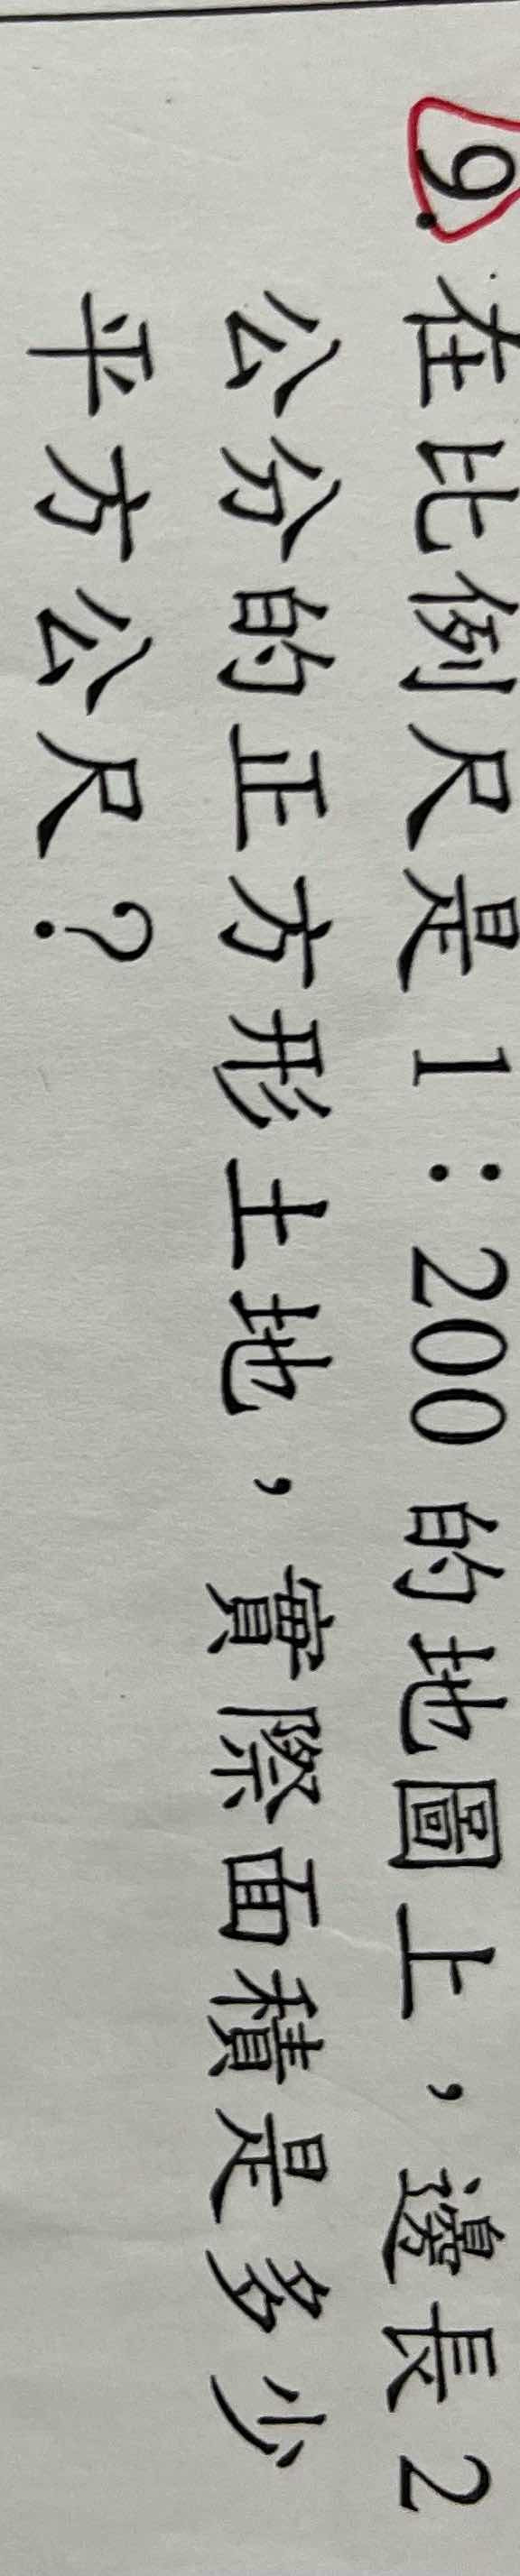 9. 在比例尺是 1：200 的地圖上，邊長 2
公分的正方形土地，實際面積是多少
平方公尺？